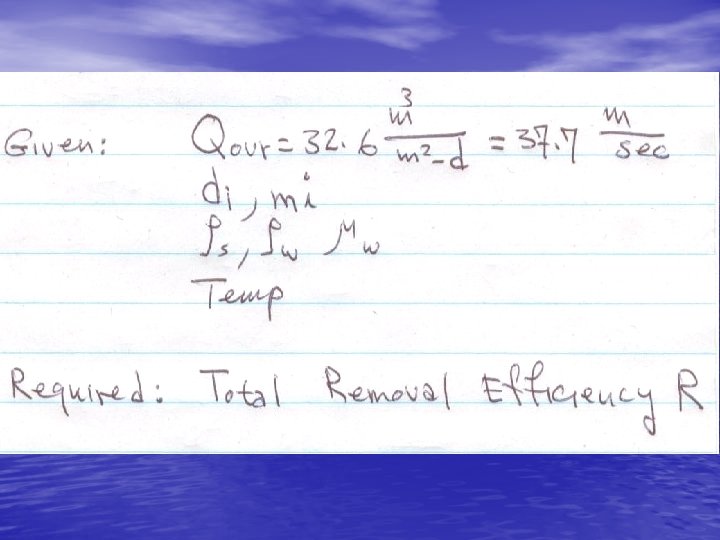 Given: Qovr = 32.6 m³/m²-d = 37.7 m/sec
di, mi
ρs, ρw μw
Temp
Required: Total Removal Efficiency R